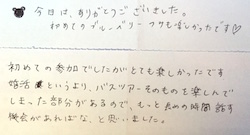 今日は、ありがとうございました。
初めてのブルーベリーワサも楽しかったです♡
初めての参加でしたがとても楽しかったです
婚活というより、バスツアーそのものを楽しんで
しまった部分があるので、もっと長めの時間話す
機会があればな、と思いました。